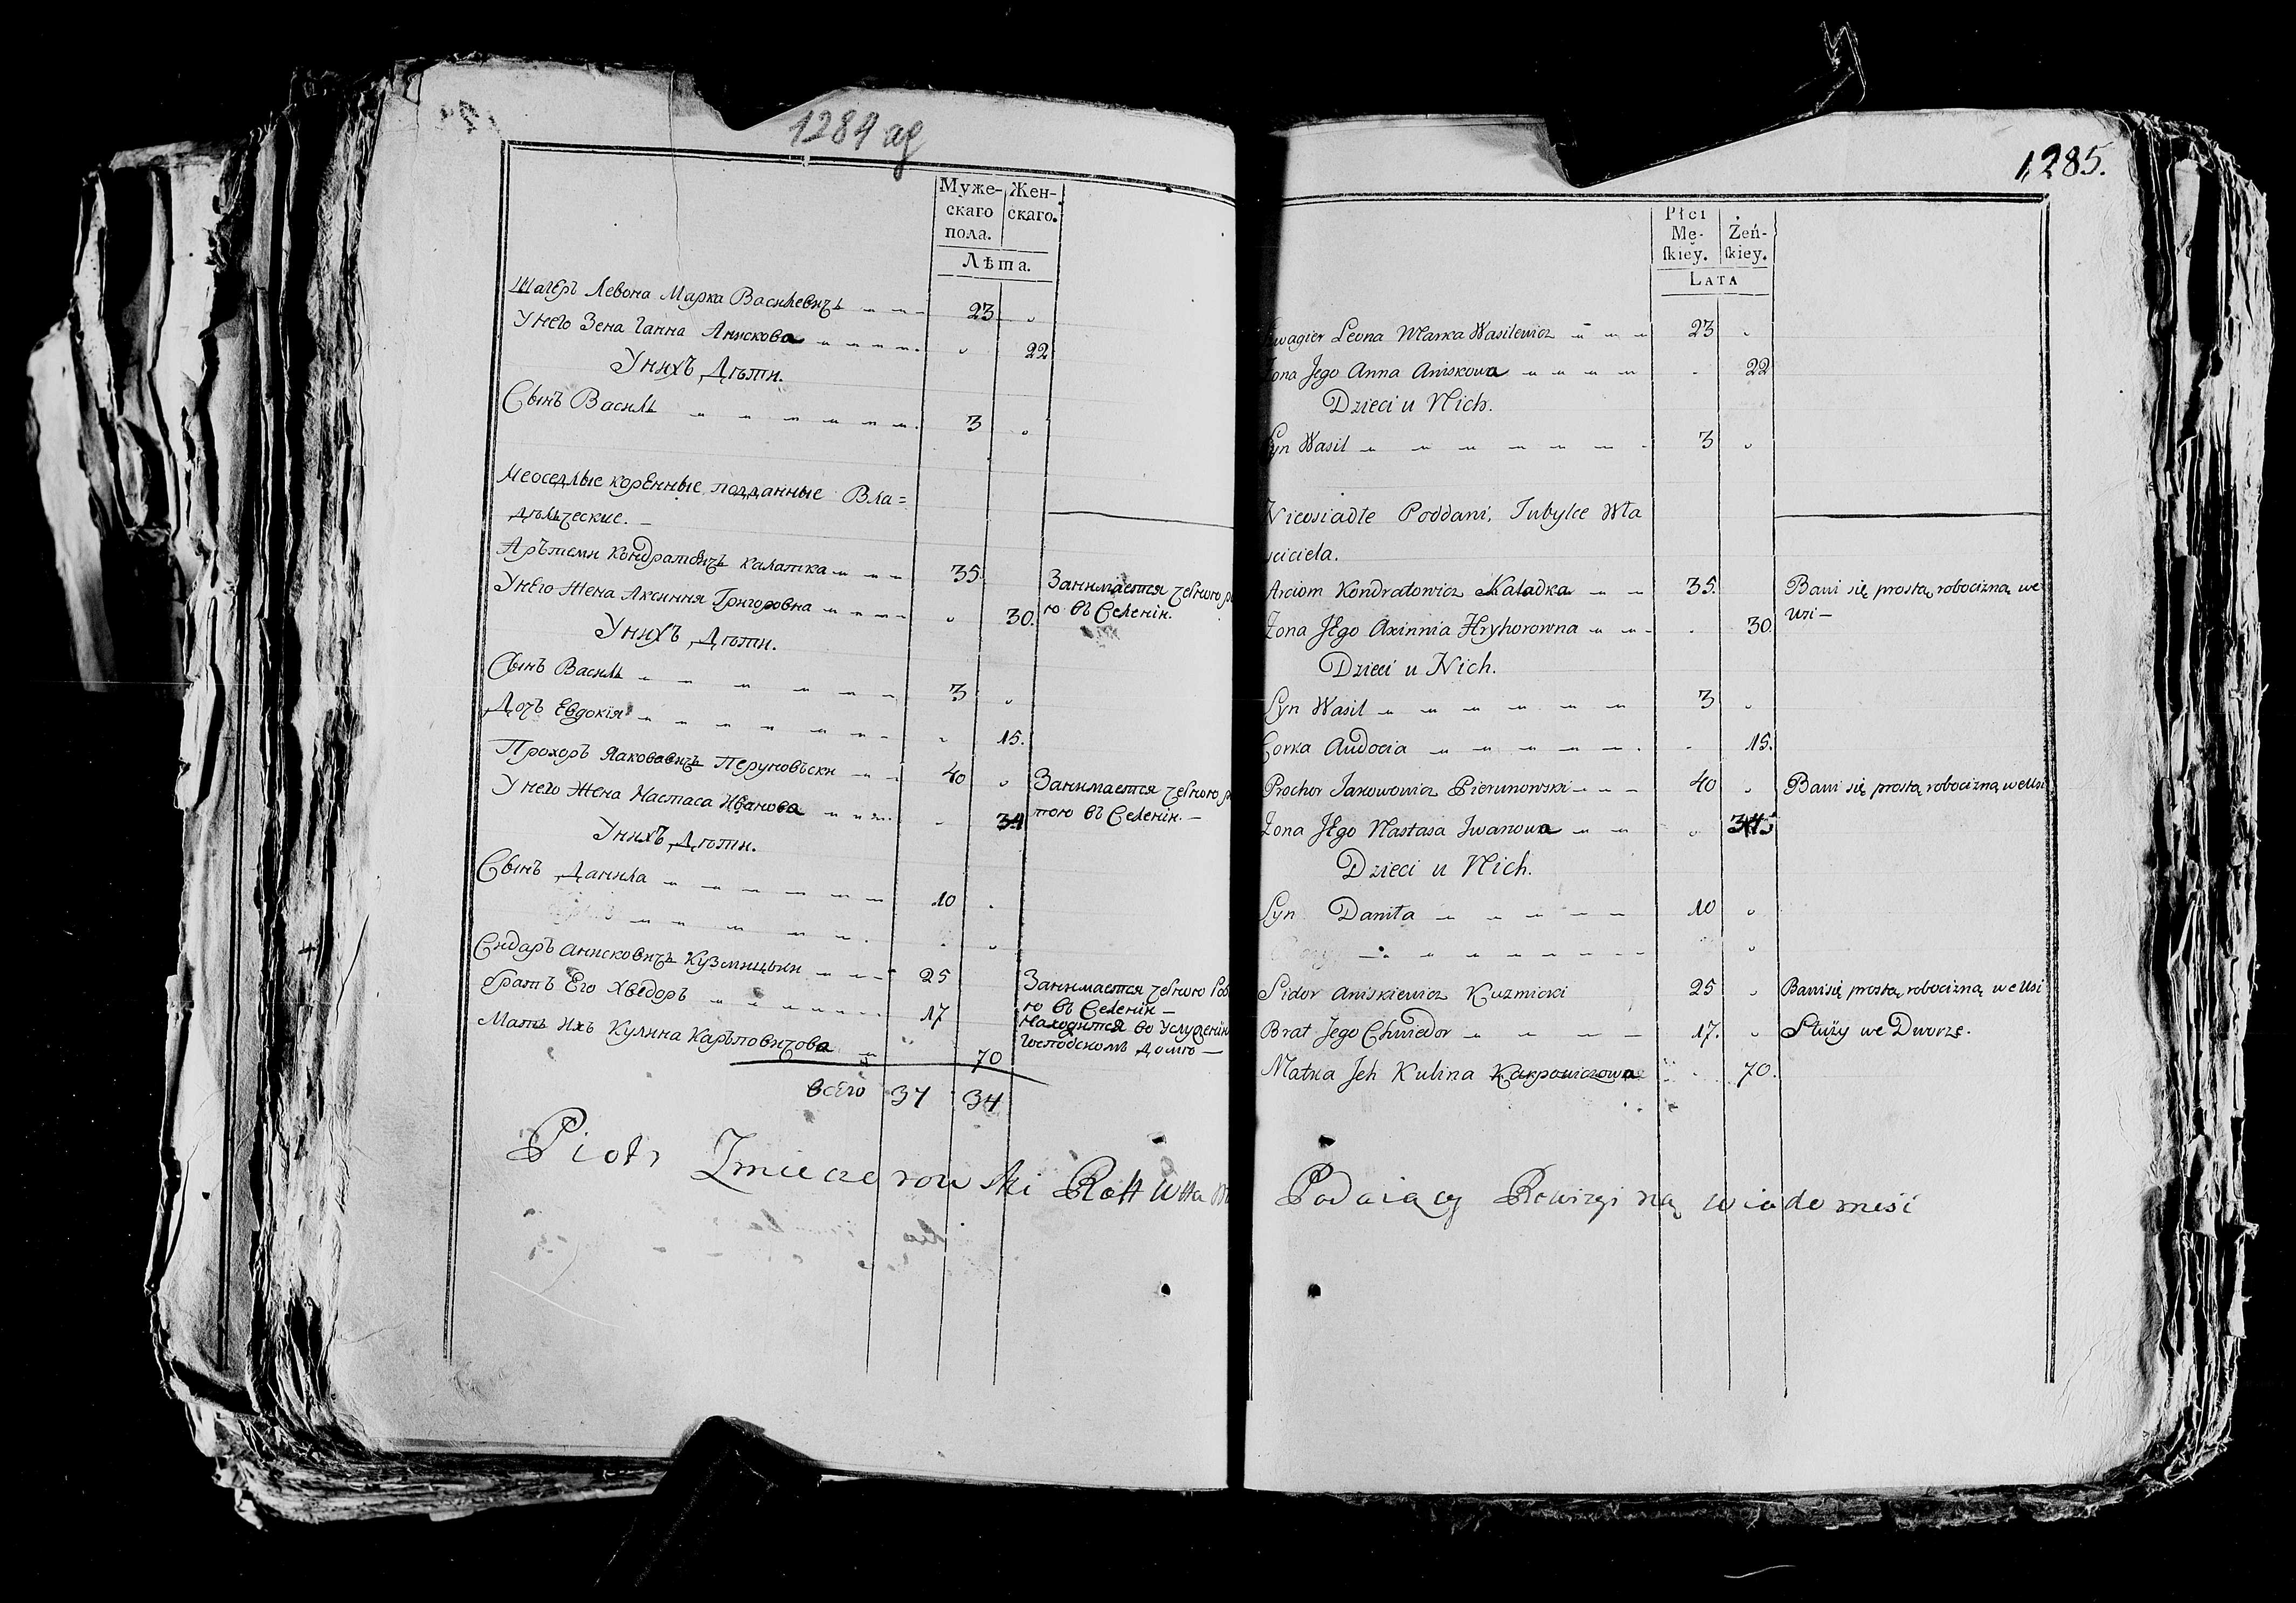 1284 об
Муже- Жен-
скаго скаго.
пола.
Лѣта.
Шагеръ Левона Марка Василевичъ 23
У него Зена Ганна Анискова 22
У нихЪ Дѣти.
Сынъ Василь 3
Неоседлые коренные подданные Вла=
дѣльческие.
Арътеми Кондратовичъ Калатка 35 Занимается черною
У него Жена Аксиння Григоровна 30. ю въ Селенiи.
У нихЪ Дѣти.
Сынъ Василь 3
Дочъ Евдокiя 15.
Прохоръ Яаковевичъ Перуновъски 40 Занимается черною
У него Жена Настаса Иванова 34 тою въ Селенiи.
У нихЪ Дѣти.
Сынъ Данила 10
Сидаръ Анисковичъ Кузмицьки 25 Занимается черною
братъ Его Хведоръ 17 ю въ Селенiи
Находится во услуженiи
Мать Ихъ Кулина Каръповичова 70 Господскомъ Домѣ
всего 37 34
Piotr Rott
1285.
Płci
Mę- Żeń-
ſkiey. ſkiey.
LATA
wagier Leona Marka Wasilewicz 23
Żona Jego Anna Aniskowa 22
Dzieci u Nich.
Syn Wasil 3
Nieosiadłe Poddani, Tubylce Wła
sciciela.
Arciom Kondratowicz Kaladka 35. Bawi się prostą robocizną we
Wsi —
Zona Jego Axinnia Hryhorowna 30
Dzieci u Nich.
Syn Wasil 3
Corka Audocia 15.
Prochor Jakowowicz Pierunowski 40 Bawi się prostą robocizną we Wsi
Zona Jego Nastasa Iwanowa
Dzieci u Nich.
Syn Daniła 10
Sidor Aniskiewicz Kuzmicki 25 Bawi się prostą robocizną we Wsi
Brat Jego Chwiedor 17. Służy we Dworze.
Matka Jeh Kulina Karpowiczowa 70.
Podaiący Rewizyi na wiadomość